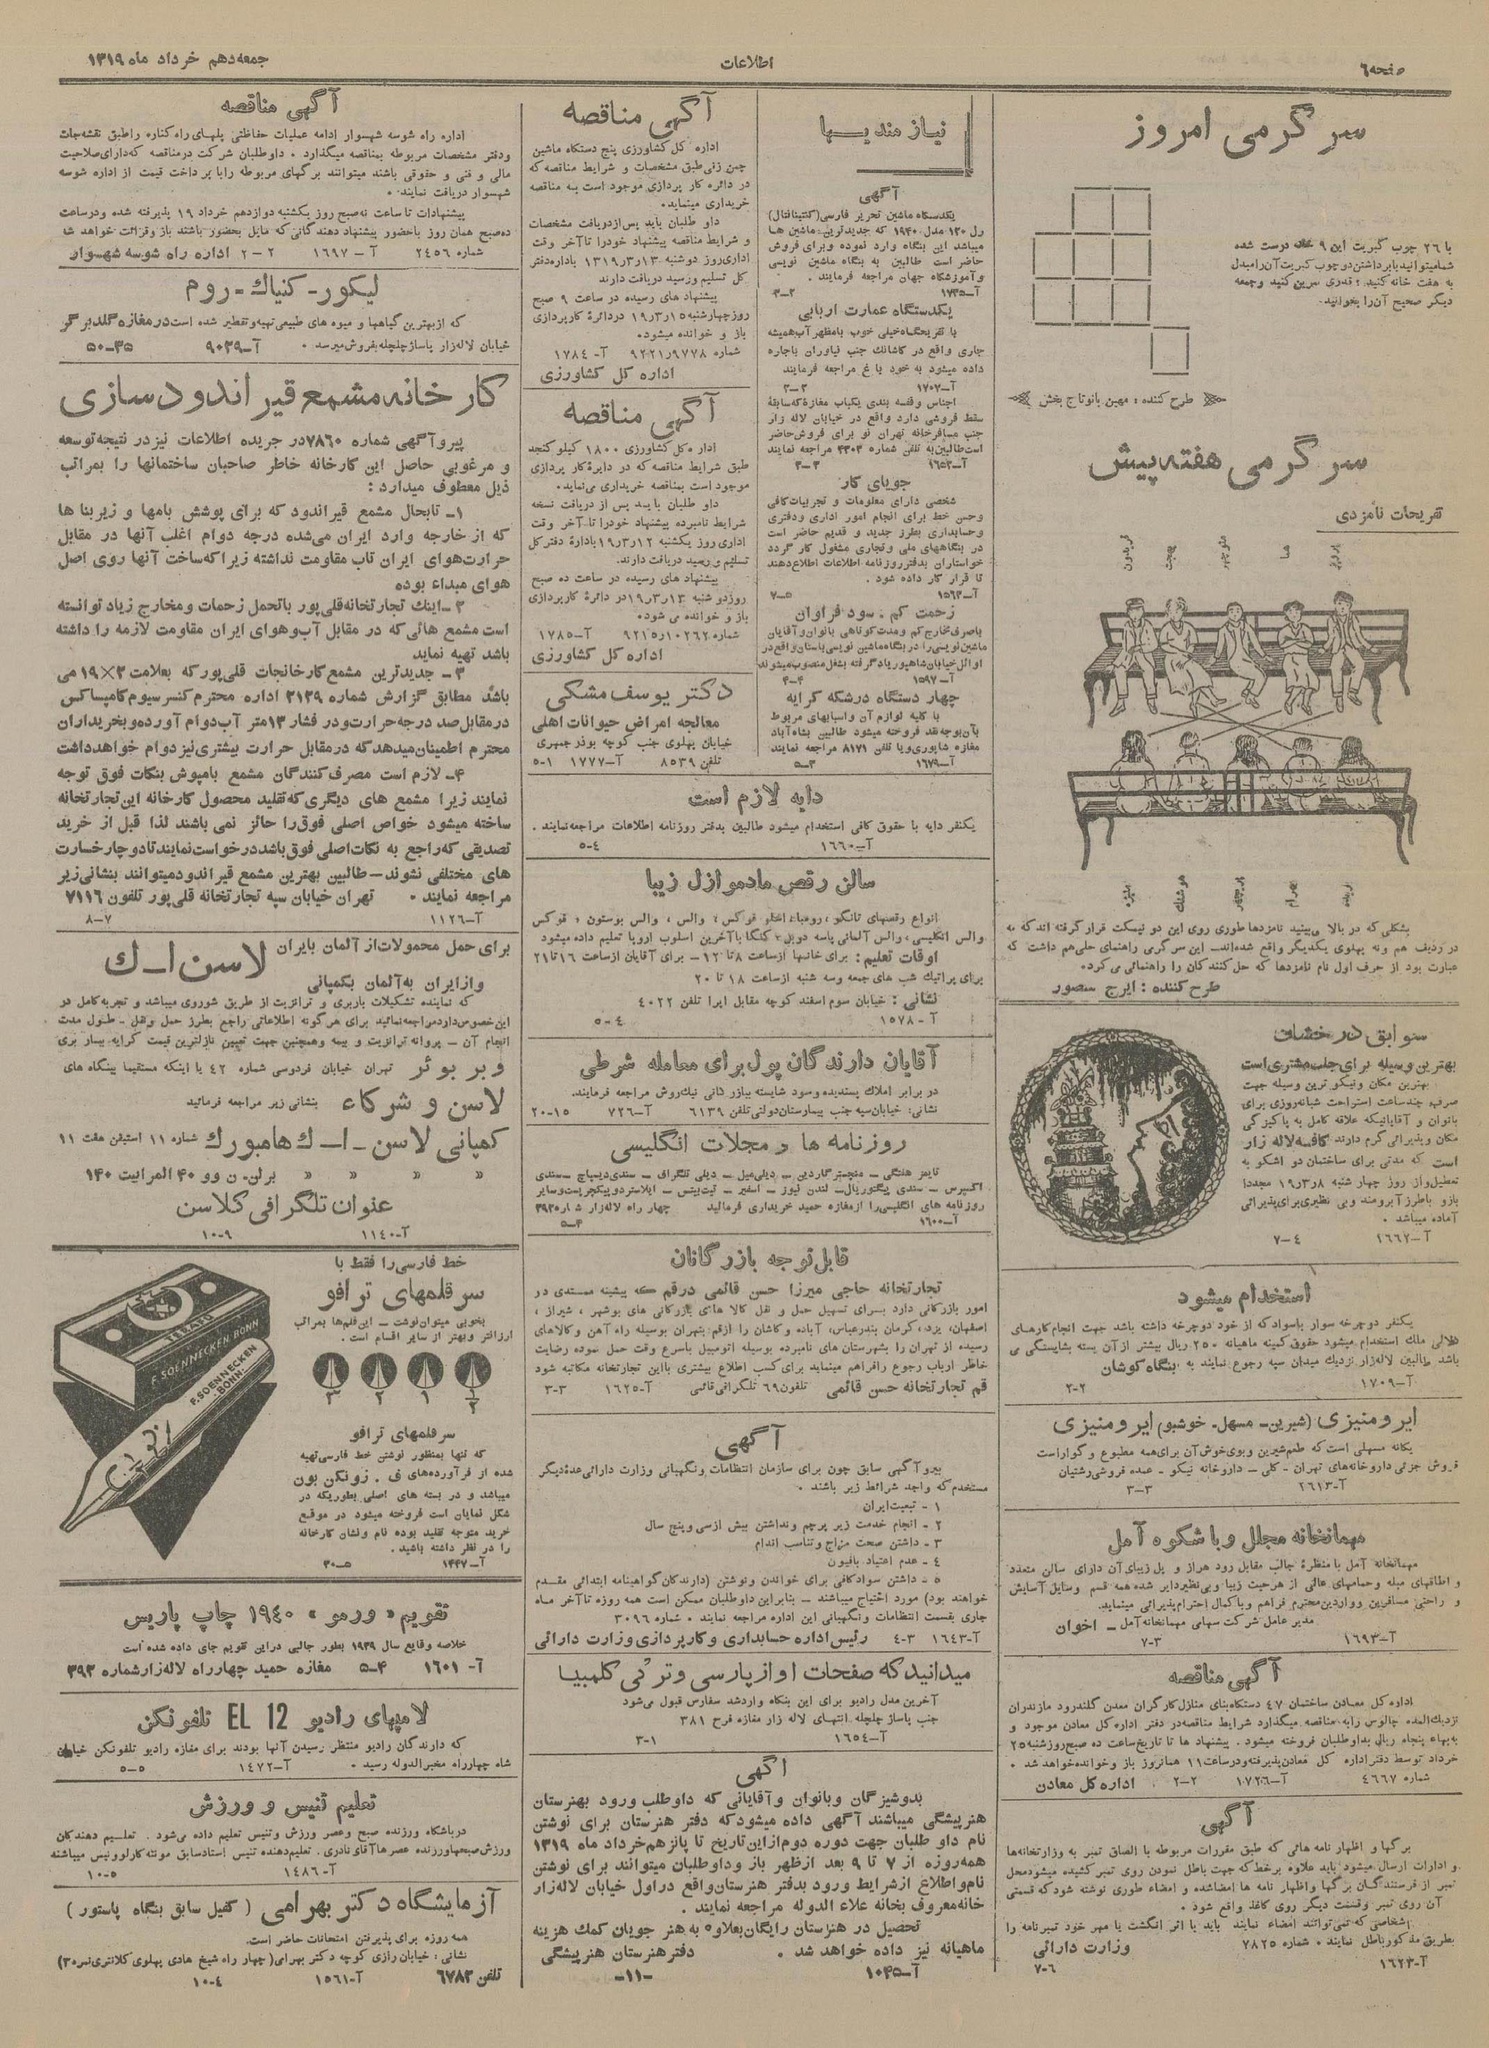 صفحه ٦
اطلاعات
جمعه دهم خرداد ماه ۱۳۱۹
سرگرمی امروز
با ۲٦ چوب کبریت این ۹ خانه درست شده
شما میتوانید با برداشتن دو چوب کبریت آن را مبدل
به هفت خانه کنید؛ قدری تمرین کنید و جمعه
دیگر صحیح آن را بخوانید.
طرح کننده : مهین بانو تاج بخش
سرگرمی هفته پیش
تفریحات نامزدی
پرویز
هما
منوچهر
بهجت
فریدون
زبیده
بهرام
پریچهر
هوشنگ
منیژه
بشکلی که در بالا می‌بینید نامزدها طوری روی این دو نیمکت قرار گرفته اند که نه
در ردیف هم و نه پهلوی یکدیگر واقع شده‌اند. این سرگرمی راهنمای حلی هم داشت که
عبارت بود از حرف اول نام نامزدها که حل کنندگان را راهنمائی می‌کرد.
طرح کننده : ایرج منصور
سوابق درخشان
بهترین وسیله برای جلب مشتری است
بهترین مکان و نیکوترین وسیله جهت
صرف چند ساعت استراحت شبانه‌روزی برای
بانوان و آقایانیکه علاقه کامل به پاکیزگی
مکان و پذیرائی گرم دارند کافه لاله زار
است که مدتی برای ساختمان دو اشکوبه
تعطیل و از روز چهار شنبه ۱۹٫۳٫۸ مجددا
باز و با طرز آبرومند و بی نظیری برای پذیرائی
آماده میباشد .
آ-۱٦٦۲ ۷-٤
استخدام میشود
یکنفر دوچرخه سوار باسواد که از خود دوچرخه داشته باشد جهت انجام کارهای
دلالی ملک استخدام میشود حقوق کمینه ماهیانه ۲۵۰ ریال بیشتر از آن بسته بشایستگی می
باشد طالبین لاله‌زار نزدیک میدان سپه رجوع نمایند به بنگاه کوشان
آ-۱۷۰۹ ۲-۲
ایرومنیزی (شیرین- مسهل- خوشبو) ایرومنیزی
یگانه مسهلی است که طعم شیرین و بوی خوش آن برای همه مطبوع و گوارا است
فروش جزئی داروخانه‌های تهران - کلی - داروخانه نیکو - عمده فروشی رشتیان
آ-۲٦۱۳ ۳-۳
مهمانخانه مجلل و با شکوه آمل
مهمانخانه آمل با منظرهٔ جالب مقابل رود هراز و پل زیبای آن دارای سالن متعدد
و اطاقهای مبله و حمامهای عالی از هر حیث زیبا و بی نظیر دایر شده همه قسم وسایل آسایش
و راحتی مسافرین و واردین محترم فراهم و با کمال احترام پذیرائی مینماید.
مدیر عامل شرکت سهامی مهمانخانه آمل - اخوان
آ-۱٦۹۳ ۷-۳
آگهی مناقصه
اداره کل معادن ساختمان ٤۷ دستگاه بنای منازل کارگران معدن گلندرود مازندران
نزدیک المده چالوس را به مناقصه میگذارد شرایط مناقصه در دفتر اداره کل معادن موجود و
به بهاء پنجاه ریال بداوطلبان فروخته میشود . پیشنهاد ها تا تاریخ ساعت ده صبح روز شنبه ۲۵
خرداد توسط دفتر اداره کل معادن پذیرفته و در ساعت ۱۱ همانروز باز و خوانده خواهد شد .
شماره ٤٦٦۷ آ-۱۰۷۲٦ ۲-۲ اداره کل معادن
آگهی
برگها و اظهار نامه هائی که طبق مقررات مربوطه با الصاق تمبر به وزارتخانه‌ها
و ادارات ارسال میشود باید علاوه بر خط که جهت باطل نمودن روی تمبر کشیده میشود محل
تمبر از فرستندگان برگها و اظهار نامه ها امضا شده و امضاء طوری نوشته شود که قسمتی
آن روی تمبر و قسمت دیگر روی کاغذ واقع شود .
اشخاصی که نمی‌توانند امضاء نمایند باید با اثر انگشت یا مهر خود تمبر نامه را
بطریق مذکور باطل نمایند . شماره ۷۸۲۵ وزارت دارائی
آ-۱٦۲۳ ۷-٦
نیازمندیها
آگهی
یکدستگاه ماشین تحریر فارسی (کنتیننتال)
رل ۱۲۰ مدل ۱۹۴۰ که جدیدترین ماشین ها
میباشد این بنگاه وارد نموده و برای فروش
حاضر است طالبین به بنگاه ماشین نویسی
و آموزشگاه جهان مراجعه فرمایند .
آ-۱۷۳۵ ۳-۲
یکدستگاه عمارت اربابی
با تفریحگاه خیلی خوب با مظهر آب همیشه
جاری واقع در کاشانک جنب نیاوران باجاره
داده میشود به خود باغ مراجعه فرمایند
آ-۱۷۰۷ ۳-۳
اجناس و قفسه بندی یکباب مغازه که سابقهٔ
سقط فروشی دارد واقع در خیابان لاله زار
جنب مسافرخانه تهران نو برای فروش حاضر
است طالبین به تلفن شماره ۴۳۰۳ مراجعه نمایند
آ-۱٦۵۲ ۳-۳
جویای کار
شخصی دارای معلومات و تجربیات کافی
و حسن خط برای انجام امور اداری و دفتری
و حسابداری بطرز جدید و قدیم حاضر است
در بنگاههای ملی و تجاری مشغول کار گردد
خواستاران بدفتر روزنامه اطلاعات اطلاع دهند
تا قرار کار داده شود .
آ-۱۵٦۳ ۷-۵
زحمت کم . سود فراوان
با صرف مخارج کم و مدت کوتاهی بانوان و آقایان
ماشین نویسی را در بنگاه ماشین نویسی باستان واقع در
اوائل خیابان شاهپور یاد گرفته بشغل منصوب میشوند
آ-۱۵۹۷ ۴-۴
چهار دستگاه درشکه کرایه
با کلیه لوازم آن و اسبابهای مربوط
بآن بوجه نقد فروخته میشود طالبین بشاه آباد
مغازه شاپوری و یا تلفن ۸۱۷۱ مراجعه نمایند
آ-۱٦۷۹ ۵-۳
آگهی مناقصه
اداره کل کشاورزی پنج دستگاه ماشین
چمن زنی طبق مشخصات و شرایط مناقصه که
در دائره کار پردازی موجود است به مناقصه
خریداری مینماید.
داو طلبان باید پس از دریافت مشخصات
و شرایط مناقصه پیشنهاد خود را تا آخر وقت
اداری روز دوشنبه ۱۳۱۹٫۳٫۱۳ باداره دفتر
کل تسلیم و رسید دریافت دارند
پیشنهاد های رسیده در ساعت ۹ صبح
روز چهارشنبه ۱۹٫۳٫۱۵ در دائرهٔ کارپردازی
باز و خوانده میشود.
شماره ۹۲۲۱٫۹۷۷۸ آ-۱۷۸٤
اداره کل کشاورزی
آگهی مناقصه
اداره کل کشاورزی ۱۸۰۰ کیلو کنجد
طبق شرایط مناقصه که در دایرهٔ کار پردازی
موجود است بمناقصه خریداری می‌نماید.
داو طلبان بایـد پس از دریافت نسخه
شرایط نامبرده پیشنهاد خود را تا آخر وقت
اداری روز یکشنبه ۱۹٫۳٫۱۲ بادارهٔ دفتر کل
تسلیم و رسید دریافت دارند.
پیشنهاد های رسیده در ساعت ده صبح
روز دو شنبه ۱۹٫۳٫۱۳ در دائره کارپردازی
باز و خوانده می شود.
شماره ۹۲۱۵٫۱۰۲٦۲ آ-۱۷۸۵
اداره کل کشاورزی
دکتر یوسف مشکی
معالجه امراض حیوانات اهلی
خیابان پهلوی جنب کوچه بوذرجمهری
تلفن ۸۵۳۹ آ-۱۷۷۷ ۵-۱
دایه لازم است
یکنفر دایه با حقوق کافی استخدام میشود طالبین بدفتر روزنامه اطلاعات مراجعه نمایند .
آ-۱٦٦۰ ۵-٤
سالن رقص مادموازل زیبا
انواع رقصهای تانگو ، رومبا، اسلو فوکس ، والس ، والس بوستون ، فوکس
والس انگلیسی، والس آلمانی پاسه دوبل، کنگا با آخرین اسلوب اروپا تعلیم داده میشود
اوقات تعلیم : برای خانمها از ساعت ۸ تا ۱۲ - برای آقایان از ساعت ۱٦ تا ۲۱
برای پراتیک شب های جمعه و سه شنبه از ساعت ۱۸ تا ۲۰
نشانی : خیابان سوم اسفند کوچه مقابل اپرا تلفن ٤۰۲۲
آ-۱۵۷۸ ۵-٤
آقایان دارندگان پول برای معامله شرطی
در برابر املاک پسندیده و سود شایسته ببازرگانی نیک‌روش مراجعه فرمایند.
نشانی : خیابان سپه جنب بیمارستان دولتی تلفن ٦۱۳۹ آ-۷۲٦ ۲۰-۱۵
روزنامه ها و مجلات انگلیسی
تایمز هفتگی - منچستر گاردین - دیلی میل - دیلی تلگراف - سندی دیسپاچ - سندی
اکسپرس - سندی پیکتوریال - لندن نیوز - اسفیر - تیت بیتس - ایلاستردو پیکچر پست و سایر
روزنامه های انگلیسی را از مغازه حمید خریداری فرمائید چهار راه لاله‌زار شماره ۳۹۲
آ-۱٦۰۰ ۵-۴
قابل توجه بازرگانان
تجارتخانه حاجی میرزا حسن قائمی در قم که پیشینه ممتدی در
امور بازرگانی دارد برای تسهیل حمل و نقل کالا های بازرگانی های بوشهر ، شیراز ،
اصفهان، یزد، کرمان بندرعباس، آباده و کاشان را از قم بتهران بوسیله راه آهن و کالاهای
رسیده از تهران را بشهرستان های نامبرده بوسیله اتومبیل باسرع وقت حمل نموده رضایت
خاطر ارباب رجوع را فراهم مینماید برای کسب اطلاع بیشتری با این تجارتخانه مکاتبه شود
قم تجارتخانه حسن قائمی تلفون ٦۹ تلگرافی قائمی آ-۱٦۲۵ ۳-۳
آگهی
پیرو آگهی سابق چون برای سازمان انتظامات و نگهبانی وزارت دارائی عدهٔ دیگر
مستخدم که واجد شرائط زیر باشند .
۱ - تبعیت ایران
۲ - انجام خدمت زیر پرچم و نداشتن بیش از سی و پنج سال
۳ - داشتن صحت مزاج و تناسب اندام
٤ - عدم اعتیاد بافیون
۵ - داشتن سواد کافی برای خواندن و نوشتن (دارندگان گواهینامه ابتدائی مقـدم
خواهند بود) مورد احتیاج میباشند - بنابراین داوطلبان ممکن است همه روزه تا آخر مـاه
جاری بقسمت انتظامات و نگهبانی این اداره مراجعه نمایند . شماره ۳۰۹٦
آ-۱٦٤۳ ٤-۳ رئیس اداره حسابداری و کارپردازی وزارت دارائی
میدانید که صفحات آواز پارسی و ترکی کلمبیا
آخرین مدل رادیو برای این بنگاه وارد شد سفارس قبول می‌شود
جنب پاساژ چلچله . انتهای لاله زار مغازه فرح ۳۸۱
آ-۱٦۵٤ ۳-۱
آگهی
بدوشیزگان و بانوان و آقایانی که داوطلب ورود بهنرستان
هنرپیشگی میباشند آگهی داده میشود که دفتر هنرستان برای نوشتن
نام داو طلبان جهت دوره دوم از این تاریخ تا پانزهم خرداد ماه ۱۳۱۹
همه روزه از ۷ تا ۹ بعد از ظهر باز و داوطلبان میتوانند برای نوشتن
نام و اطلاع از شرایط ورود بدفتر هنرستان واقع در اول خیابان لاله‌زار
خانه معروف بخانه علاء الدوله مراجعه نمایند .
تحصیل در هنرستان رایگان بعلاوه به هنر جویان کمک هزینه
ماهیانه نیز داده خواهد شد . دفتر هنرستان هنرپیشگی
آ-۱۰۴۵ -۱۱-
آگهی مناقصه
اداره راه شوسه شهسوار ادامه عملیات حفاظتی پلهای راه کناره را طبق نقشه‌جات
و دفتر مشخصات مربوطه بمناقصه میگذارد . داوطلبان شرکت در مناقصه که دارای صلاحیت
مالی و فنی و حقوقی باشند میتوانند برگهای مربوطه را با پرداخت قیمت از اداره شوسه
شهسوار دریافت نمایند .
پیشنهادات تا ساعت نه صبح روز یکشنبه دوازدهم خرداد ۱۹ پذیرفته شده و در ساعت
ده صبح همان روز با حضور پیشنهاد دهندگانی که مایل بحضور باشند باز و قرائت خواهد شد
شماره ۲٤۵٦ آ-۱٦۹۷ ۲-۲ اداره راه شوسه شهسوار
لیکور- کنیاک - روم
که از بهترین گیاهها و میوه های طبیعی تهیه و تقطیر شده است در مغازه گلدبرگر
خیابان لاله زار پاساژ چلچله بفروش میرسد . آ-۹۰۲۹ ۵۰-۳۵
کارخانه مشمع قیر اندود سازی
پیرو آگهی شماره ۷۸٦۰ در جریده اطلاعات نیز در نتیجه توسعه
و مرغوبی حاصل این کارخانه خاطر صاحبان ساختمانها را بمراتب
ذیل معطوف میدارد :
۱- تابحال مشمع قیراندود که برای پوشش بامها و زیر بنا ها
که از خارجه وارد ایران می‌شده درجه دوام اغلب آنها در مقابل
حرارت هوای ایران تاب مقاومت نداشته زیرا که ساخت آنها روی اصل
هوای مبداء بوده
۲- اینک تجارتخانه قلی پور با تحمل زحمات و مخارج زیاد توانسته
است مشمع هائی که در مقابل آب و هوای ایران مقاومت لازمه را داشته
باشد تهیه نماید
۳- جدیدترین مشمع کارخانجات قلی پور که بعلامت ۳×۱۹ می
باشد مطابق گزارش شماره ۲۱۲۹ اداره محترم کنسرسیوم کامپساکس
در مقابل صد درجه حرارت و در فشار ۱۳ متر آب دوام آورده و بخریداران
محترم اطمینان میدهد که در مقابل حرارت بیشتری نیز دوام خواهد داشت
۴- لازم است مصرف کنندگان مشمع بامپوش بنکات فوق توجه
نمایند زیرا مشمع های دیگری که تقلید محصول کارخانه این تجارتخانه
ساخته میشود خواص اصلی فوق را حائز نمی باشند لذا قبل از خرید
تصدیقی که راجع به نکات اصلی فوق باشد درخواست نمایند تا دوچار خسارت
های مختلفی نشوند - طالبین بهترین مشمع قیراندود میتوانند بنشانی زیر
مراجعه نمایند . تهران خیابان سپه تجارتخانه قلی پور تلفون ۷۱۱٦
آ-۱۱۲٦ ۸-۷
برای حمل محمولات از آلمان بایران
لاسن ا-ک
و از ایران به آلمان بکمپانی
که نماینده تشکیلات باربری و ترانزیت از طریق شوروی میباشد و تجربه کامل در
این خصوص دارد مراجعه نمائید برای هر گونه اطلاعاتی راجع بطرز حمل و نقل - طول مدت
انجام آن - پروانه ترانزیت و بیمه و همچنین جهت تعیین نازلترین قیمت کرایه بسار بری
وبر بوئر تهران خیابان فردوسی شماره ٤۲ یا اینکه مستقیما ببنگاه های
لاسن و شرکاء بنشانی زیر مراجعه فرمائید
کمپانی لاسن - ا - ک هامبورک شماره ۱۱ استیفن هفت ۱۱
« « « « برلن. ن وو ۴۰ المرایت ۱۴۰
عنوان تلگرافی کلاسن
آ-۱۱٤۰ ۱۰-۹
خط فارسی را فقط با
سر قلمهای ترافو
بخوبی میتوان نوشت - این قلم‌ها بمراتب
ارزانتر و بهتر از سایر اقسام است .
۱/۲ ۱ ۲ ۳
TERAFU
F. SOENNECKEN BONN
F. SOENNECKEN
-BONN-
سر قلمهای ترافو
که تنها بمنظور نوشتن خط فارسی تهیه
شده از فرآورده‌های ف . زونکن بون
میباشد و در بسته های اصلی بطوریکه در
شکل نمایان است فروخته میشود در موقع
خرید متوجه تقلید بوده نام و نشان کارخانه
را در نظر داشته باشید .
آ-۱۴۴۷ ۳۰-۵
تقویم « ورمو » ۱۹۴۰ چاپ پاریس
خلاصه وقایع سال ۱۹۳۹ بطور جالبی در این تقویم جای داده شده است
آ-۱٦۰۱ ۵-۴ مغازه حمید چهار راه لاله زار شماره ۳۹۲
لامپهای رادیو EL 12 تلفونکن
که دارندگان رادیو منتظر رسیدن آنها بودند برای مغازه رادیو تلفونکن خیابان
شاه چهارراه مخبرالدوله رسید . آ-۱٤۷۲ ۵-۵
تعلیم تنیس و ورزش
در باشگاه ورزنده صبح و عصر ورزش و تنیس تعلیم داده می‌شود . تعلـیم دهندکان
ورزش صبحها ورزنده عصر ها آقای نادری . تعلیم دهنده تنیس استاد سابق مونته کارلو و نیس میباشند
آ-۱٤۸٦ ۱۰-۵
آزمایشگاه دکتر بهرامی ( کفیل سابق بنگاه پاستور )
همه روزه برای پذیرفتن امتحانات حاضر است.
نشانی : خیابان رازی کوچه دکتر بهرامی (چهار راه شیخ هادی پهلوی کلانتری نمره ۳)
تلفن ٦۷۸۲ آ-۱۵٦۱ ۱۰-٤